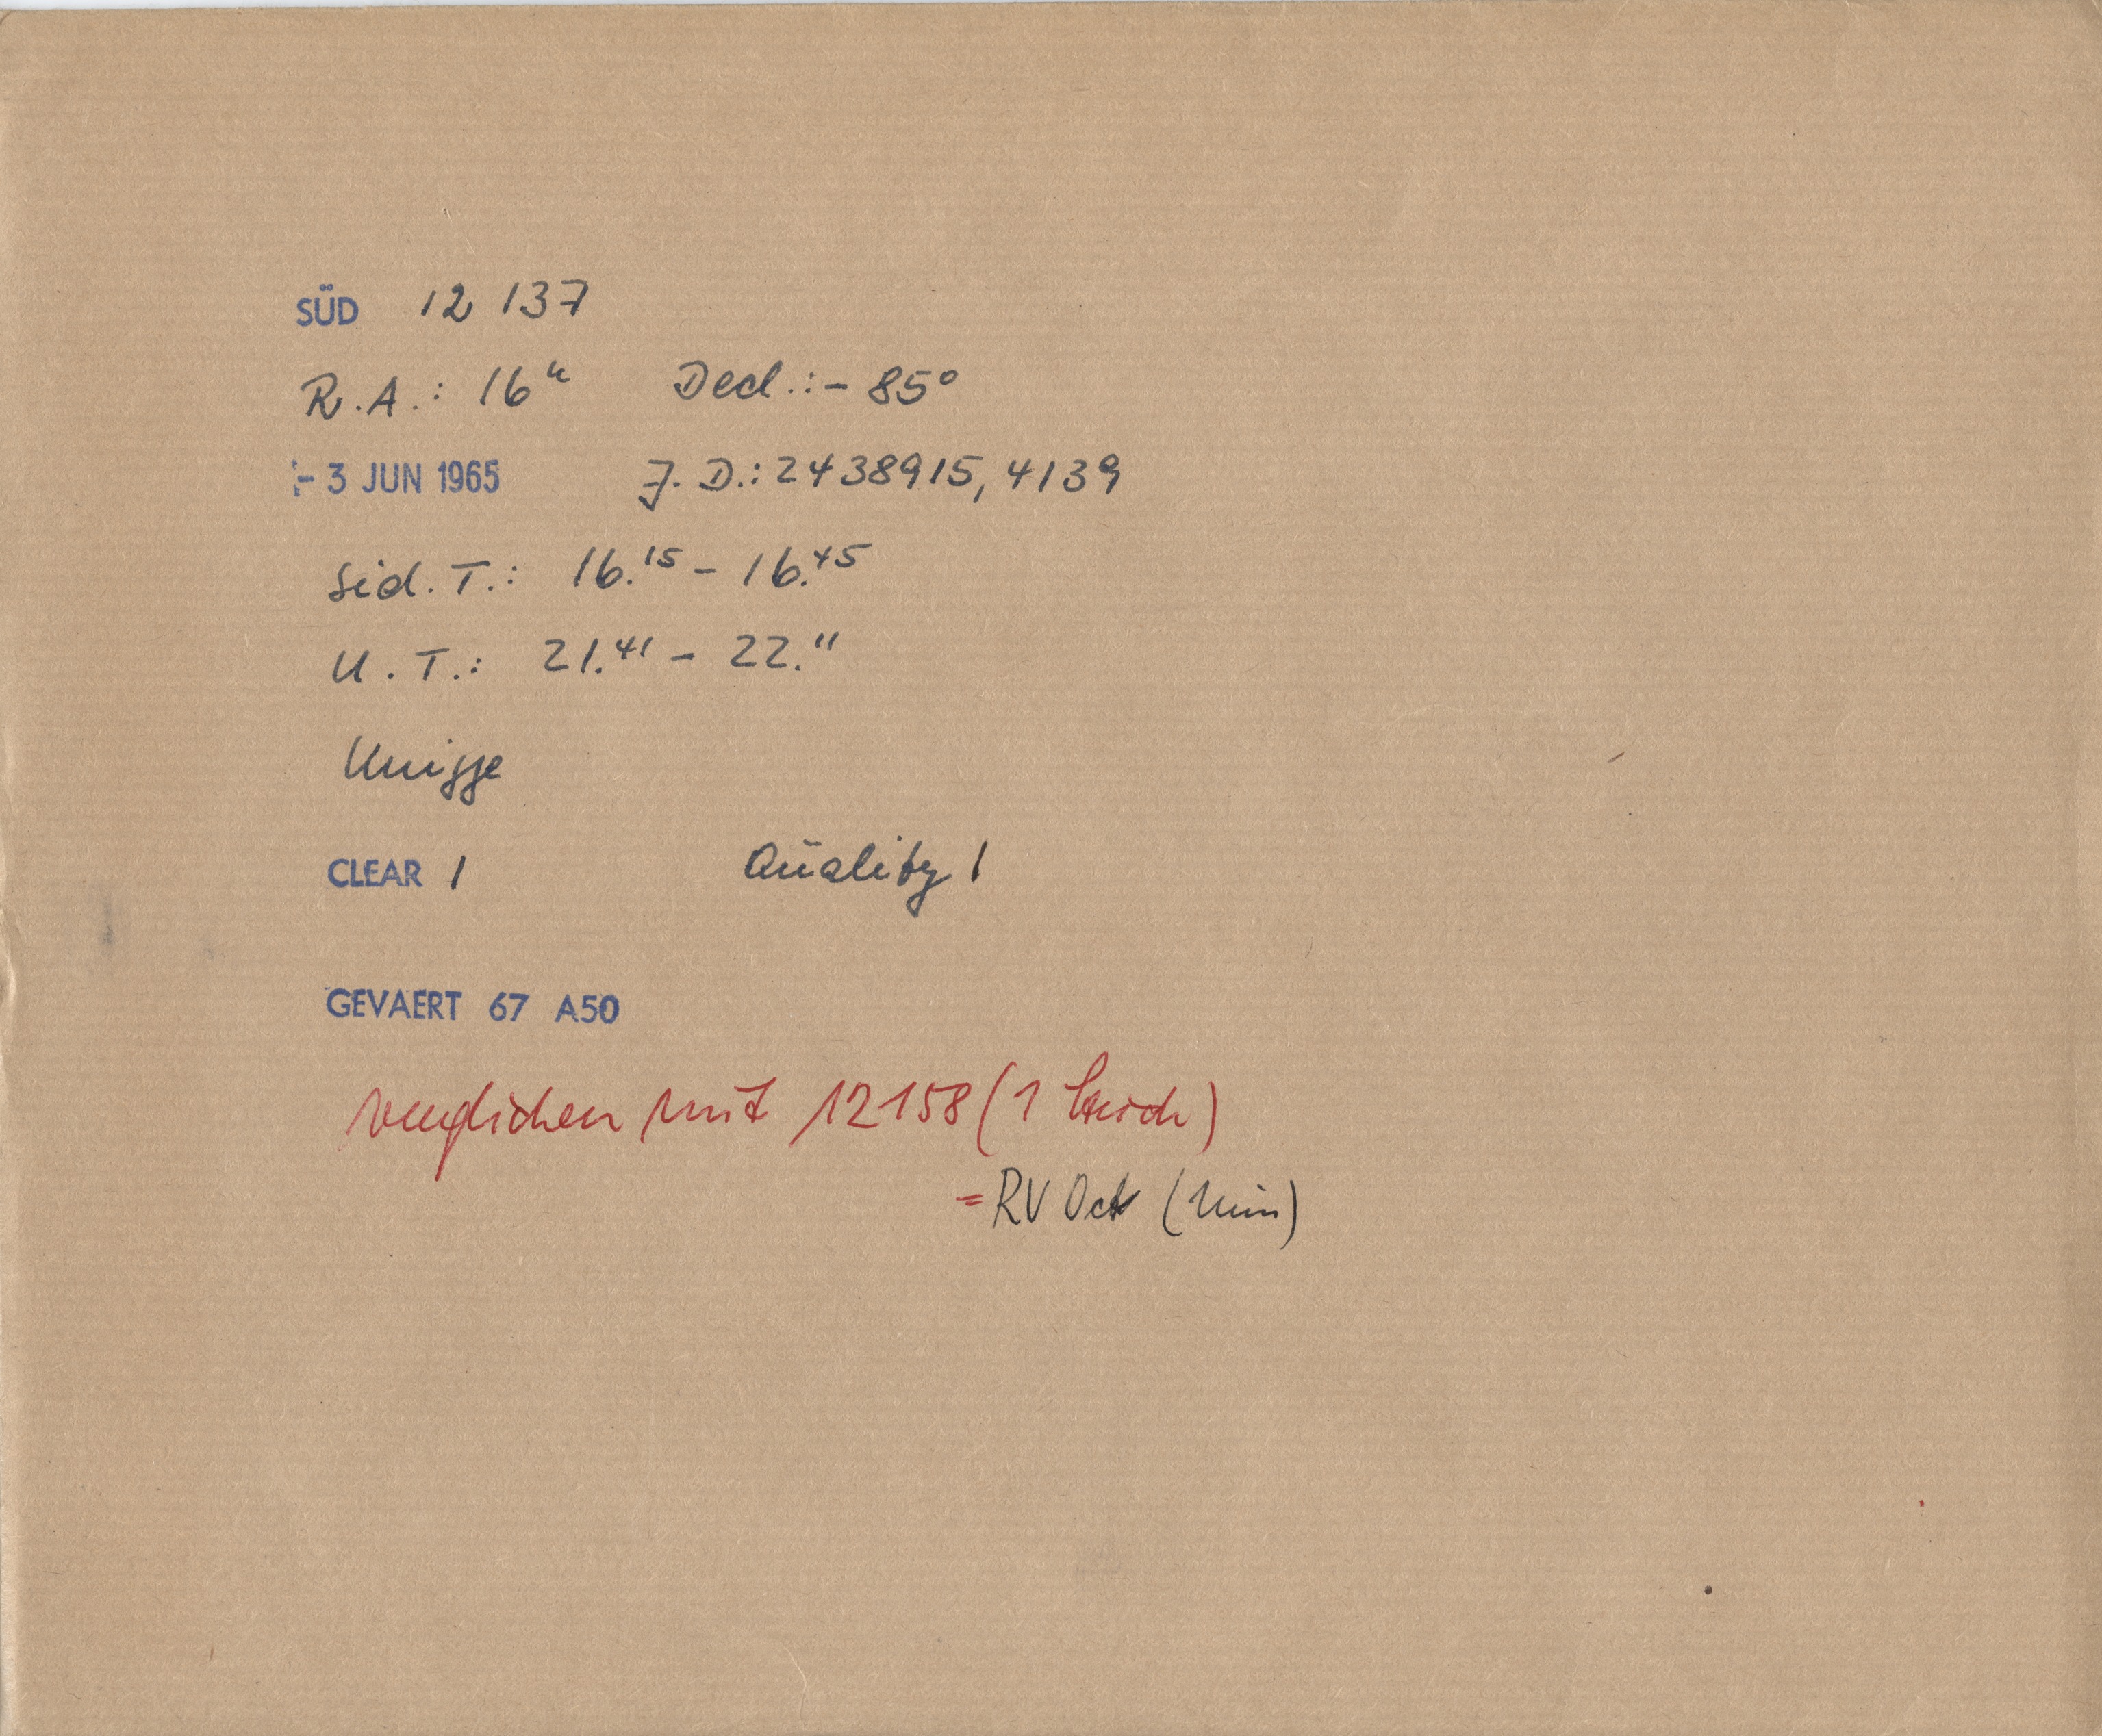 SÜD 12 137
R.A.: 16ʰ Decl.: - 85°
- 3 JUN 1965 J.D.: 2438915,4139
Sid. T.: 16.¹⁵ - 16.⁴⁵
U.T.: 21.⁴¹ - 22.¹¹
Knigge
CLEAR 1 Quality 1
GEVAERT 67 A50
verglichen mit 12158 (1 Strich)
= RV Oct (Min)